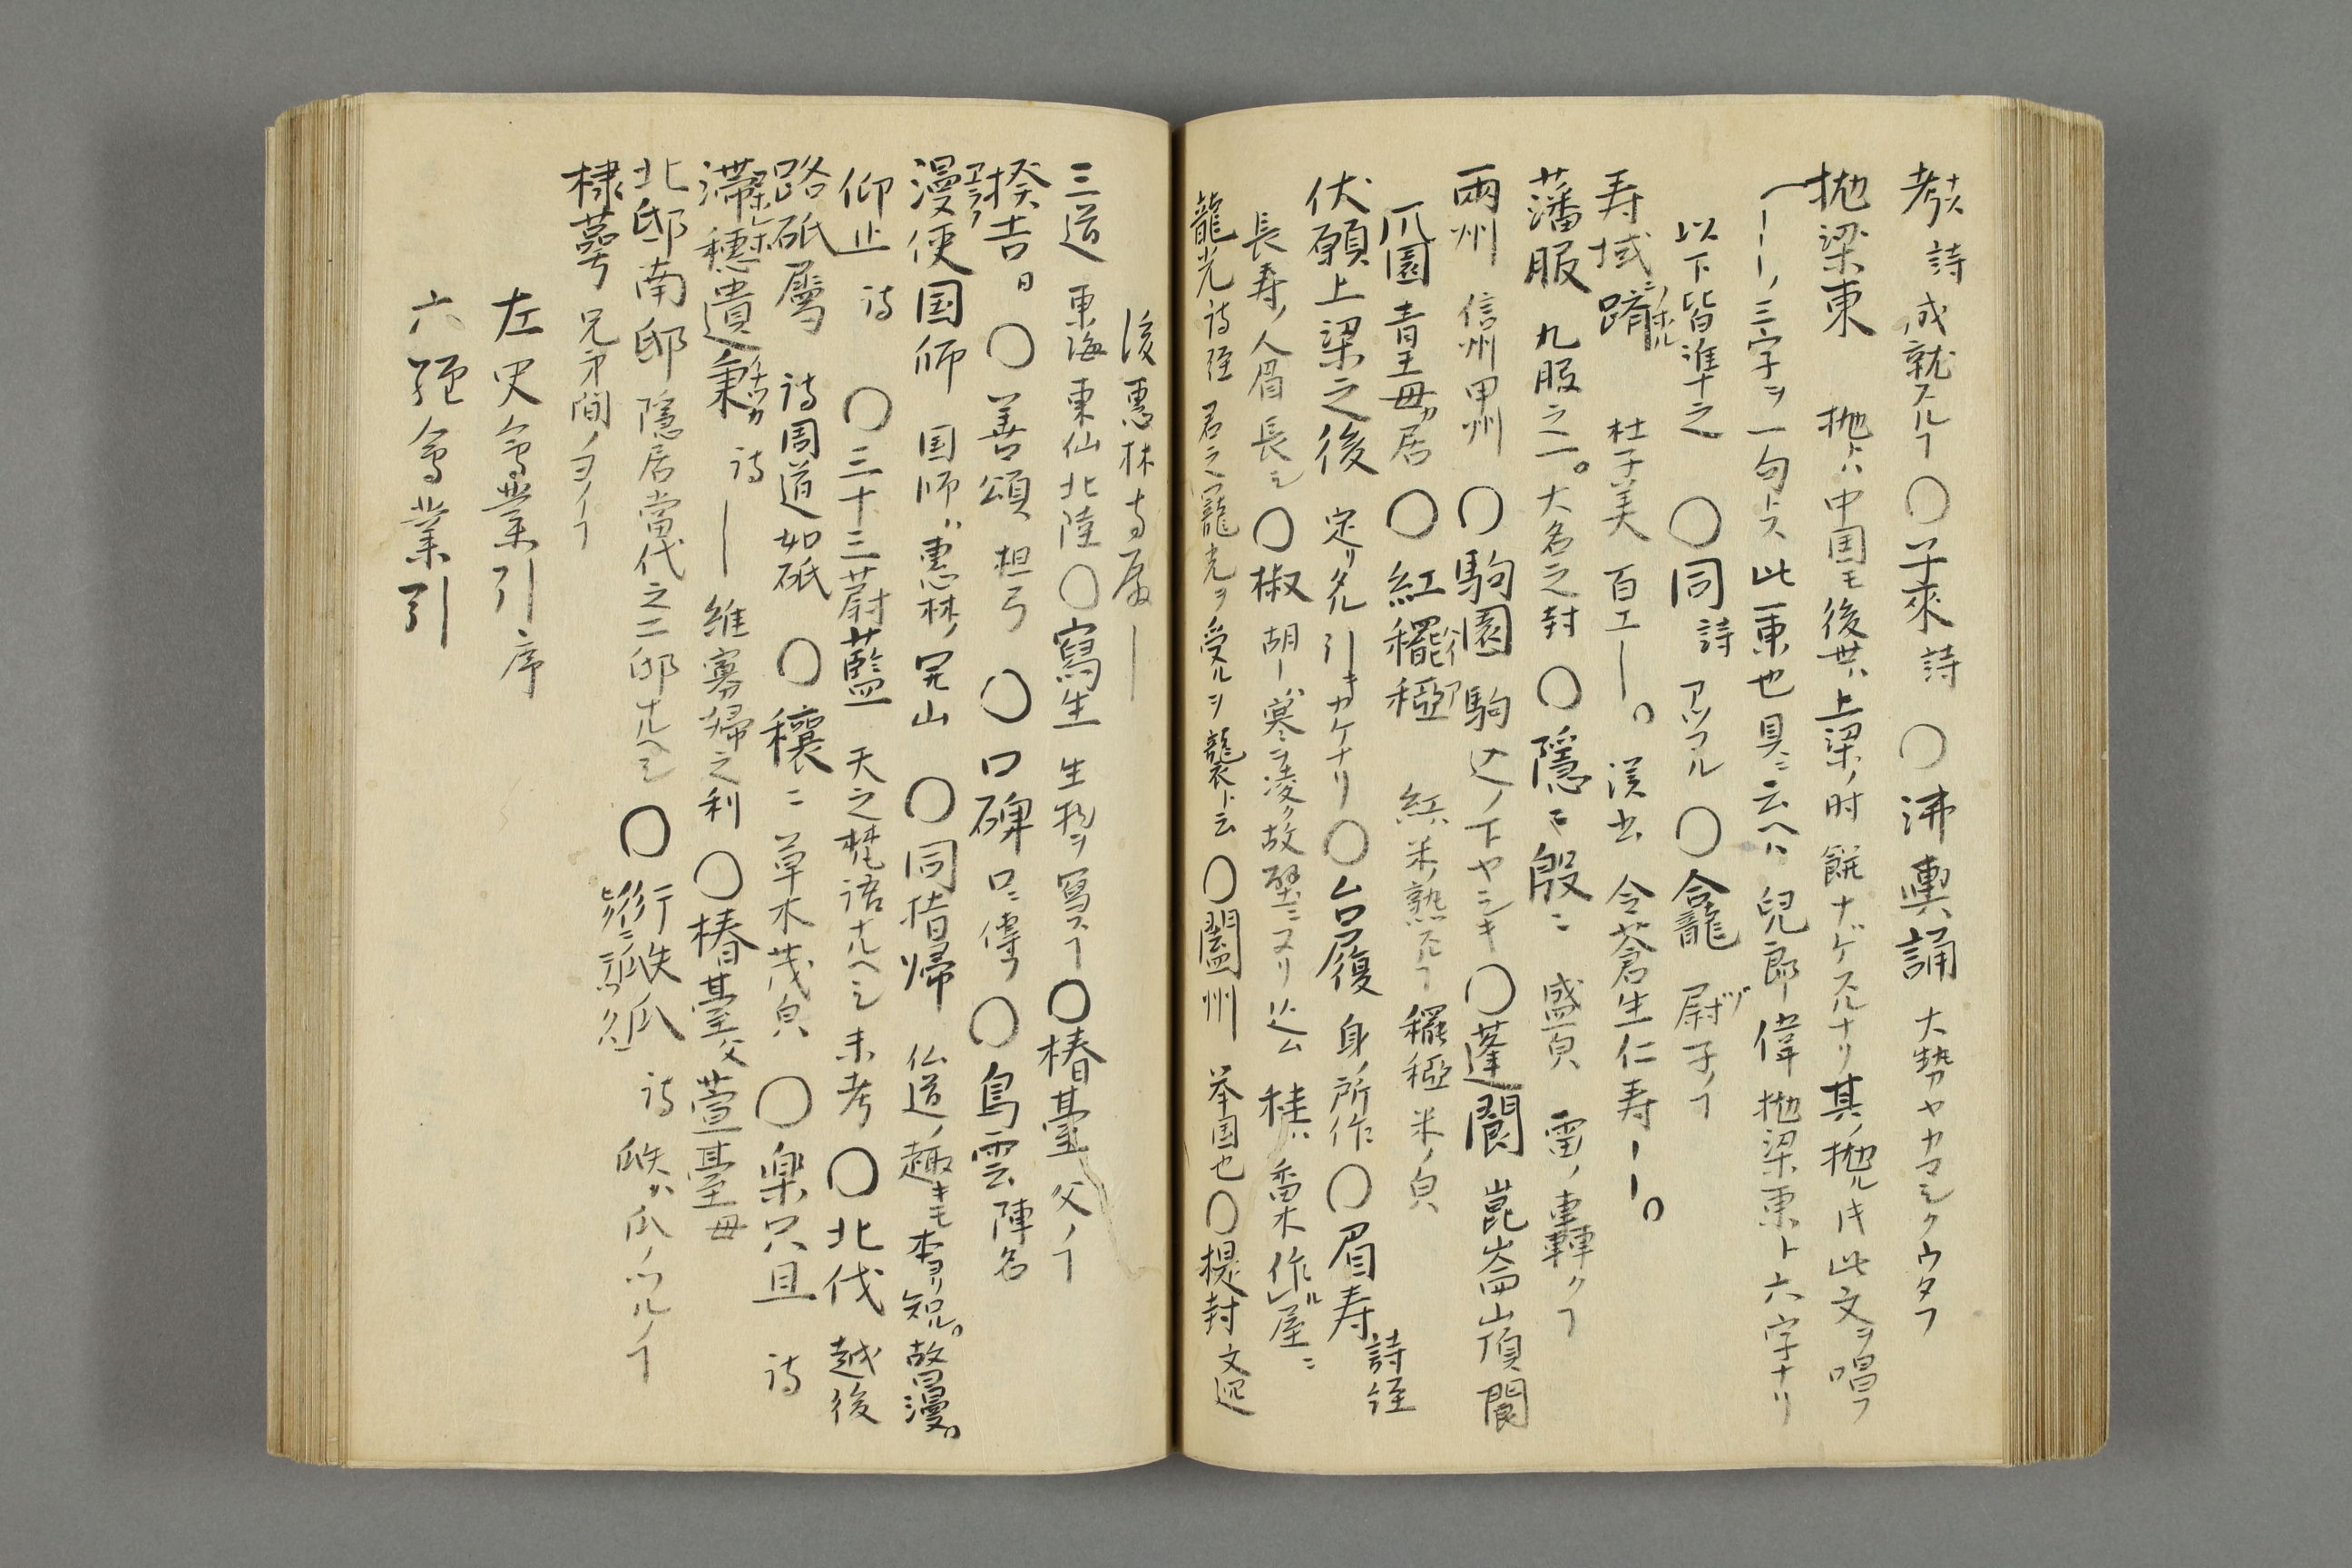 詩 成就スルヿ ○子来 詩 ○沸輿誦 大勢ヤカマシクウタフ
抛梁東 抛トハ中国モ後世ハ上梁ノ時餅ナゲスルナリ其ノ抛ル片此文ヲ唱フ
ーーーノ三字ヲ一句トス此東也具ニ云ヘハ兒郎偉抛梁東ト六字ナリ
以下皆準之 ○同 詩 アツマル ○合龍 尉子ノヿ
寿域ニ躋ノホル 杜子美 百工ー。漢書 令蒼生仁寿ーー。
藩服 九服之一。大名之封 ○隠々殷ニ 盛皃 雷ノ轟クヿ
兩州 信州甲州 ○駒園 駒込ノ下ヤシキ ○蓬閬 崑崙山頂閬
爪園 青王母カ居 ○紅䆉稏 紅ハ米ノ熟スルヿ 䆉稏 米ノ皃
伏願上梁之後 定リタル引キカケナリ ○台履 身ノ所作 ○眉寿 詩経
長寿ノ人眉長シ ○椒 胡ー寒ヲ凌ク故壁ニヌリ込ム 桂ハ香木作ル屋ニ
龍光 詩経 君之寵光ヲ受ルヲ襲ト云 ○闔州 举国也 ○提封 文選
後惠林寺ー
三道 東海東仙北陸 ○寫生 生物ヲ寫スヿ ○椿臺 父ノヿ
揆吉日 ○善頌 担弓 ○口碑 口ニ傳フ ○鳥雲 陣名
漫便国师 国师ハ惠林ノ開山 ○同指帰 仏道ノ趣キモ本ヨリ知ル。故曰漫。
仰止 詩 ○三十三蔚藍 天之梵語ナルヘシ未考 ○北伐 越後
路砥屬 詩周道如砥 ○穰ニ 草木茂皃 ○楽只且 詩
滯穗遺秉 詩ー維寡婦之利 ○椿臺父萱臺母
北邸南邸 隠居當代之二邸ナルヘシ ○衍瓞瓜 詩 瓞ハ瓜ノツルノヿ
棣萼 兄弟間ノヨイヿ
左史會業引序
六經會業引